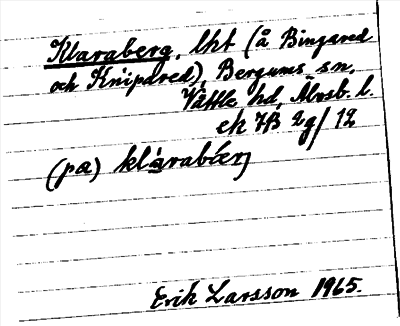 Klaraberg, lht (å Bingared
och Knipared), Bergums sn,
Vättle hd, Älvsb. l.
ek 7B 2g/12
(pa) klárabærj
Erik Larsson 1965.